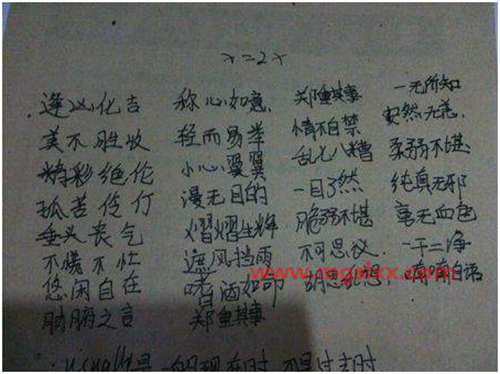 x=2x
逢凶化吉 称心如意, 郑重其事 一无所知
美不胜收 轻而易举 情不自禁 安然无恙,
精彩绝伦 小心翼翼 乱七八糟 柔弱不堪
孤苦伶仃 漫无目的 一目了然 纯真无邪
垂头丧气 熠熠生辉 脆弱不堪 毫无血色
不慌不忙 遮风挡雨 不可思议 一干二净
悠闲自在 嗜酒如命 胡思乱想, 喃喃自语
肺腑之言 郑重其事
usually是一般现在时,不是过去时